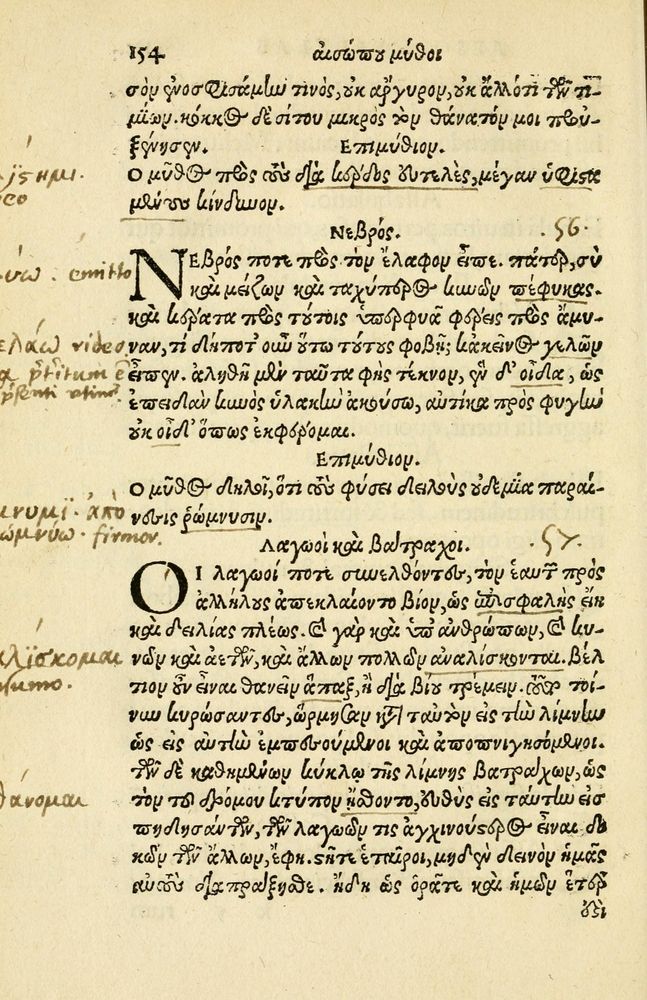 154 αἰσώπου μῦθοι
σὸν ἐνοσφισάμην τινὸς, οὐκ ἄργυρον, οὐκ ἄλλό τι τῶν τι-
μίων. κόκκος δὲ σίτου μικρὸς τὸν θάνατόν μοι προὐ-
ξένησεν. Ἐπιμύθιον.
Ο μῦθος πρὸς τοὺς διὰ κέρδος εὐτελὲς, μέγαν ὑφιστα
μένους κίνδυνον.
Νεβρός. 56.
ΝΕβρός ποτε πρὸς τὸν ἔλαφον εἶπε. πάτερ, σὺ
καὶ μείζων καὶ ταχύτερος κυνῶν πέφυκας.
καὶ κέρατα πρὸς τούτοις ὑπερφυᾶ φέρεις πρὸς ἄμυ-
ναν, τί δήποτ' οὖν οὕτω τούτους φοβῇ; κἀκεῖνος γελῶν
εἶπεν. ἀληθῆ μὲν ταῦτα φῂς τέκνον, ἓν δ' οἶδα, ὡς
ἐπειδὰν κυνὸς ὑλακὴν ἀκούσω, αὐτίκα πρὸς φυγὴν
οὐκ οἶδ' ὅπως ἐκφέρομαι.
Ἐπιμύθιον.
Ο μῦθος δηλοῖ, ὅτι τοὺς φύσει δειλοὺς οὐδεμία παραί-
νεσις ῥώννυσιν.
Λαγωοὶ καὶ Βάτραχοι. 57.
ΟΙ λαγωοί ποτε συνελθόντες, τὸν ἑαυτῶν πρὸς
ἀλλήλους ἀπεκλαίοντο βίον, ὡς ἐπισφαλὴς εἴη
καὶ δειλίας πλέως. καὶ γὰρ καὶ ὑπ' ἀνθρώπων, καὶ κυ-
νῶν καὶ ἀετῶν, καὶ ἄλλων πολλῶν ἀναλίσκονται. Βέλ
τιον οὖν εἶναι θανεῖν ἅπαξ, ἢ διὰ βίου τρέμειν. τοῦτο τοί-
νυν κυρώσαντες, ὥρμησαν κατὰ ταὐτὸν εἰς τὴν λίμνην
ὡς εἰς αὐτὴν ἐμπεσούμενοι καὶ ἀποπνιγησόμενοι.
τῶν δὲ καθημένων κύκλῳ τῆς λίμνης βατράχων, ὡς
τὸν τοῦ δρόμου κτύπον ᾔσθοντο, εὐθὺς εἰς ταύτην εἰσ
πηδησάντων, τῶν λαγωῶν τις ἀγχινούστερος εἶναι δο
κῶν τῶν ἄλλων, ἔφη. στῆτε ἑταῖροι, μηδὲν δεινὸν ἡμᾶς
αὐτοὺς διαπράξησθε. ἤδη ὡς ὁρᾶτε καὶ ἡμῶν ἕτερ
emitto
ελάω rideo
άπο
firmor.
αλίσκομαι
θάνομαι